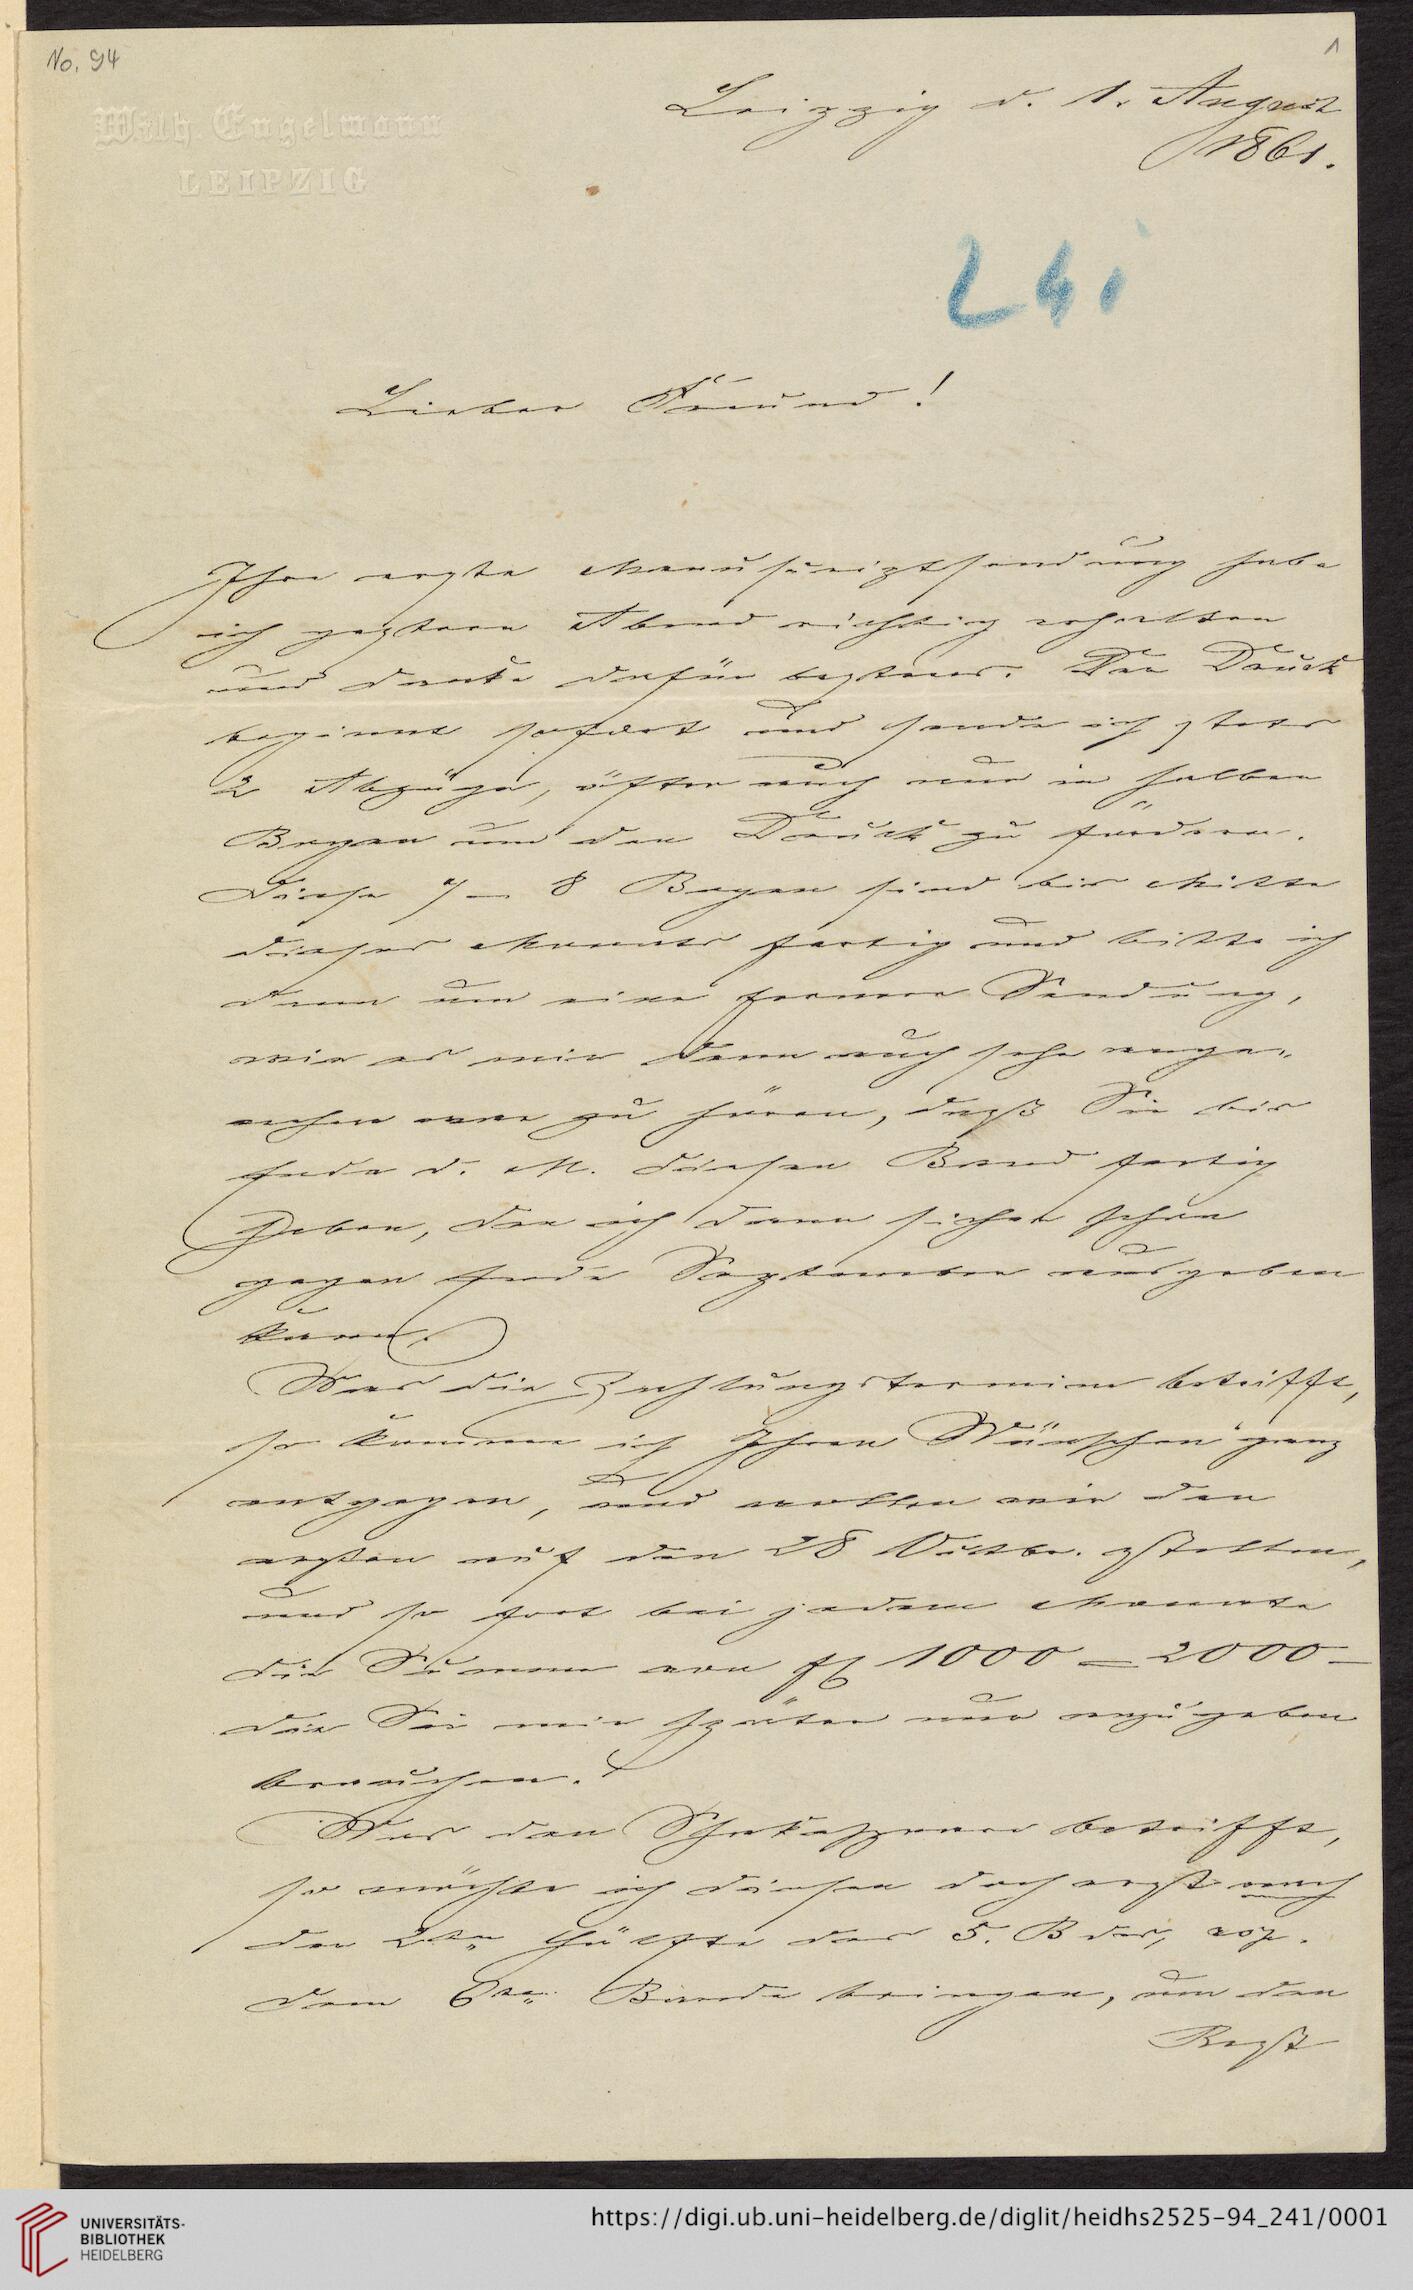 No. 94
1
Wilh Engelmann
LEIPZIG
Leipzig d. 1. August
1861.
241
Lieber Freund!
Ihre erste Manuscriptsendung habe
ich gestern Abend richtig erhalten
und danke dafür bestens. Der Druck
beginnt sofort und sende ich stets
2 Abzüge, öfter auch nur in halben
Bogen um den Druck zu fördern.
Diese 7 – 8 Bogen sind bis Mitte
dieses Monats fertig und bitte ich
dann um eine fernere Sendung,
wie es mir denn auch sehr ange-
nehm war zu hören, daß Sie bis
Ende d. M. diesen Band fertig
haben, den ich dann sicher schon
gegen Ende September ausgeben
kann.
Was die Zahlungstermine betrifft,
so komme ich Ihren Wünschen ganz
entgegen, und wollen wir den
ersten auf den 28 Octbr. stellen,
und so fort bei jedem Monate
die Summe von 1000 – 2000 –
die Sie mir später nur anzugeben
brauchen.
Was den Shakespeare betrifft,
so möchte ich diesen doch erst nach
der 2ten Hälfte des 5. Bdes, resp.
dem 6ten Bande bringen, um den
Rest
UNIVERSITÄTS-
BIBLIOTHEK
HEIDELBERG
https://digi.ub.uni-heidelberg.de/diglit/heidhs2525-94_241/0001